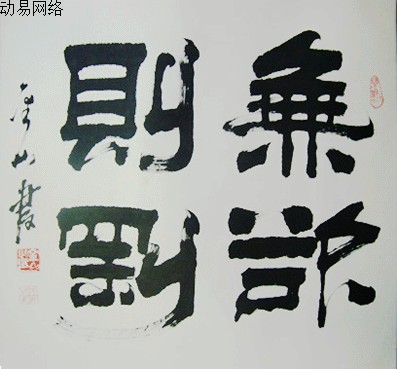 动易网络
無欲
則剛